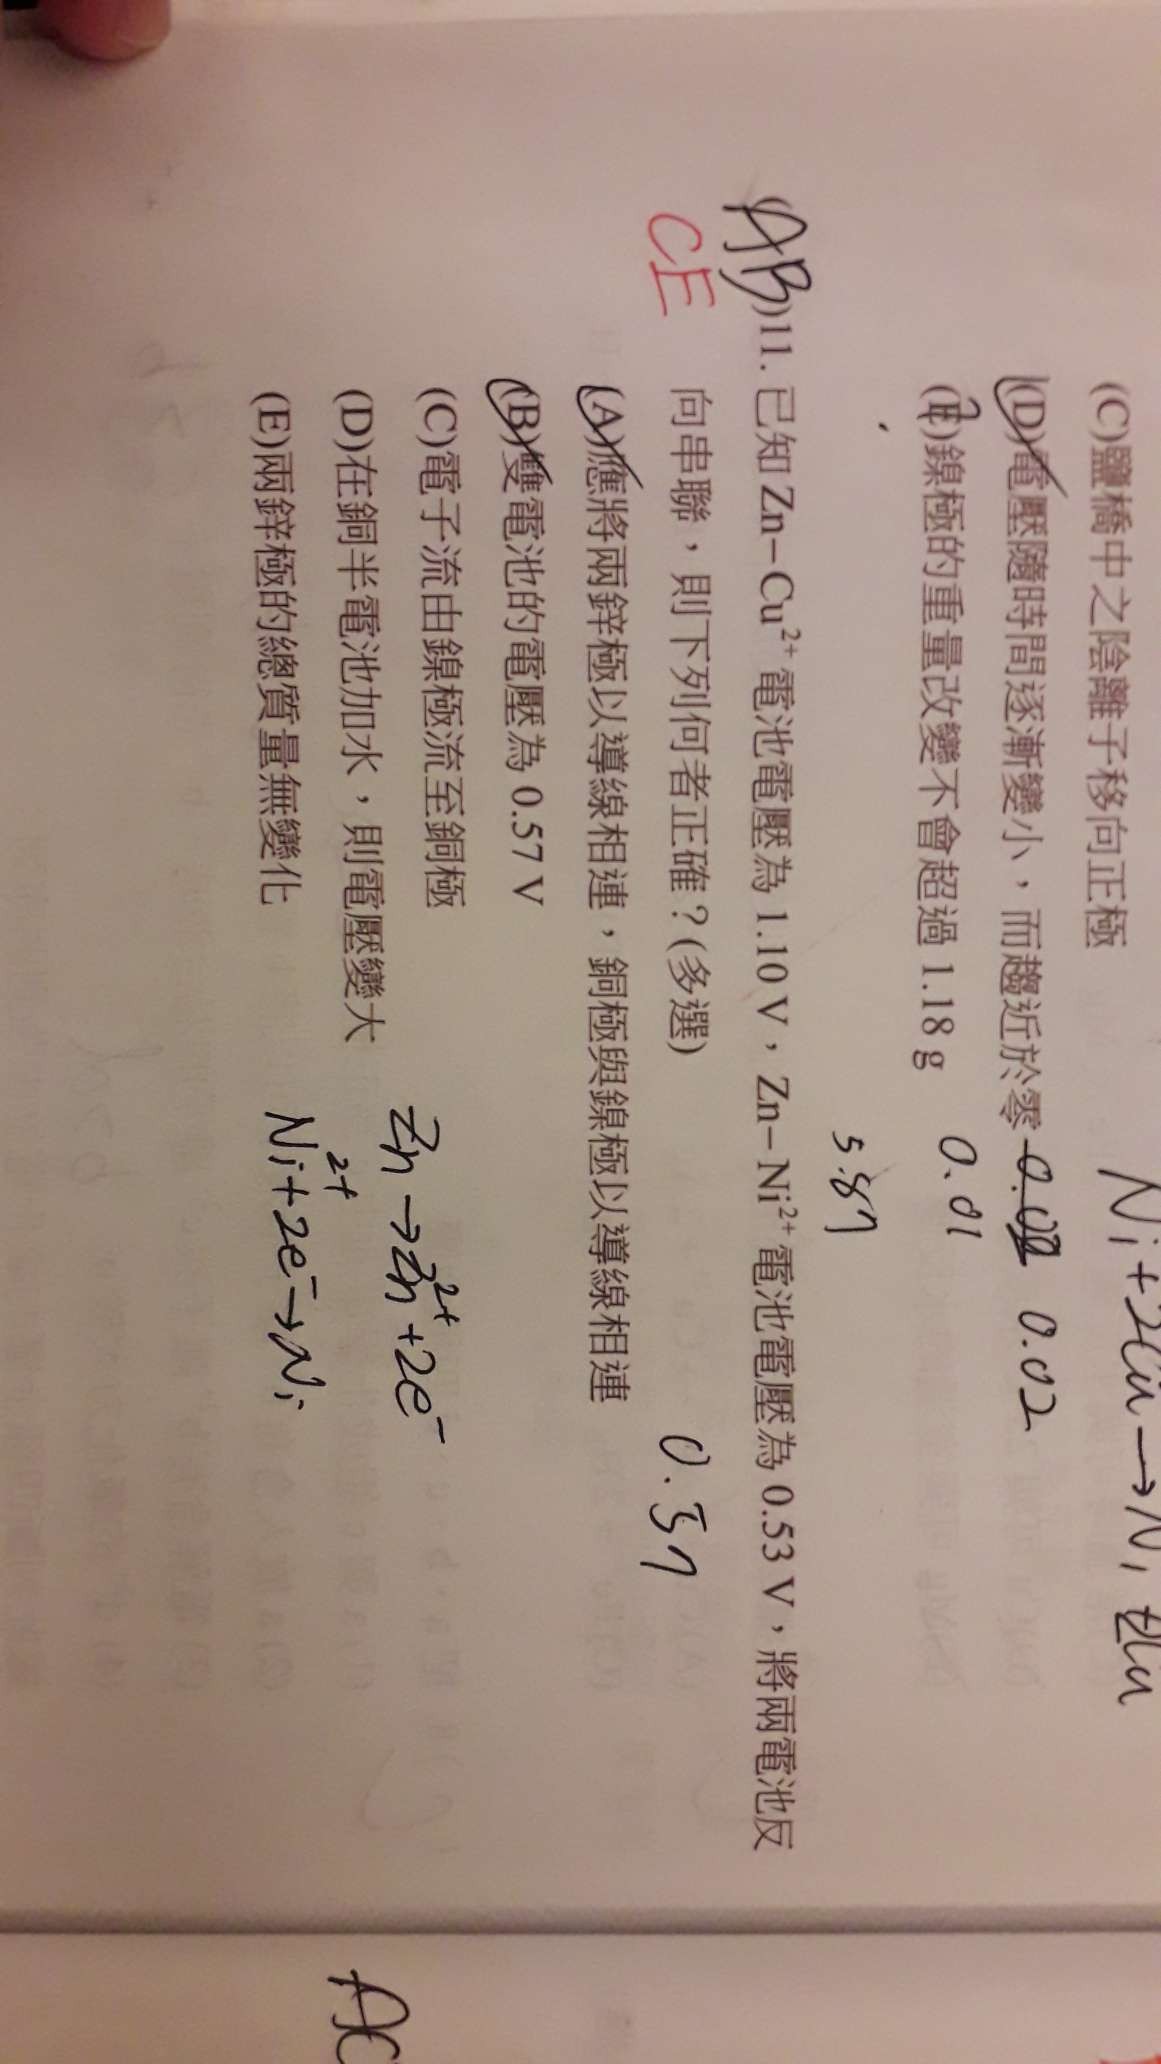 (C)鹽橋中之陰離子移向正極
Ni+2Cu→Ni
(D)電壓隨時間逐漸變小，而趨近於零 0.02
(E)鎳極的重量改變不會超過 1.18 g 0.01
5.87
AB)11. 已知 Zn－Cu²⁺ 電池電壓為 1.10 V，Zn－Ni²⁺ 電池電壓為 0.53 V，將兩電池反
CE
向串聯，則下列何者正確？(多選) 0.57
(A)應將兩鋅極以導線相連，銅極與鎳極以導線相連
(B)雙電池的電壓為 0.57 V
(C)電子流由鎳極流至銅極
(D)在銅半電池加水，則電壓變大 Zn→Zn²⁺+2e⁻
(E)兩鋅極的總質量無變化 Ni²⁺+2e⁻→Ni
AC